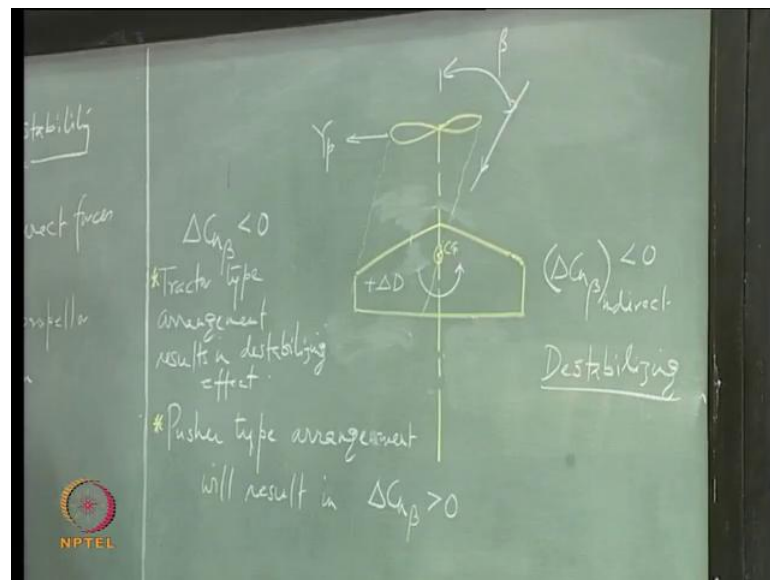 stability
rect forces
propeller
ΔCnβ < 0
*Tractor type
arrangement
results in destabilizing
effect.
*Pusher type arrangement
will result in ΔCnβ > 0
Yp
β
CG
+ΔD
(ΔCnβ)indirect < 0
Destabilizing
NPTEL